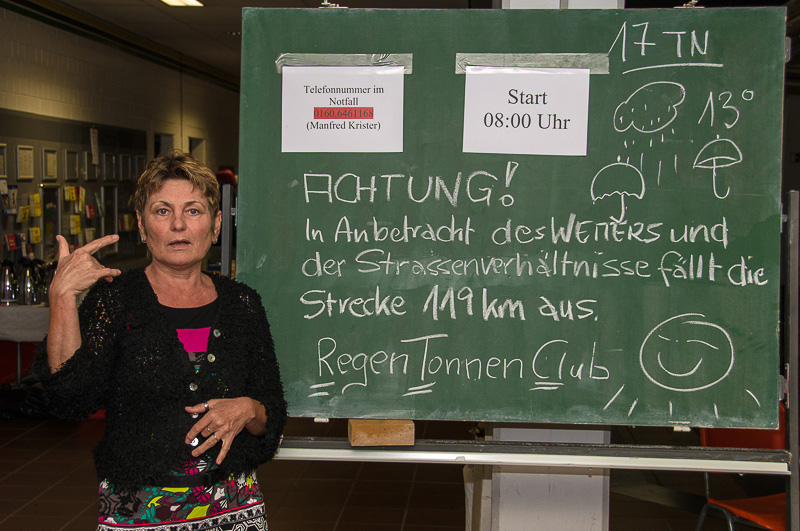 17 TN
Telefonnummer im
Notfall
0160.6461168
(Manfred Krister)
Start
08:00 Uhr
13°
ACHTUNG!
In Anbetracht des WETTERS und
der Strassenverhältnisse fällt die
Strecke 119 km aus.
RegenTonnenClub